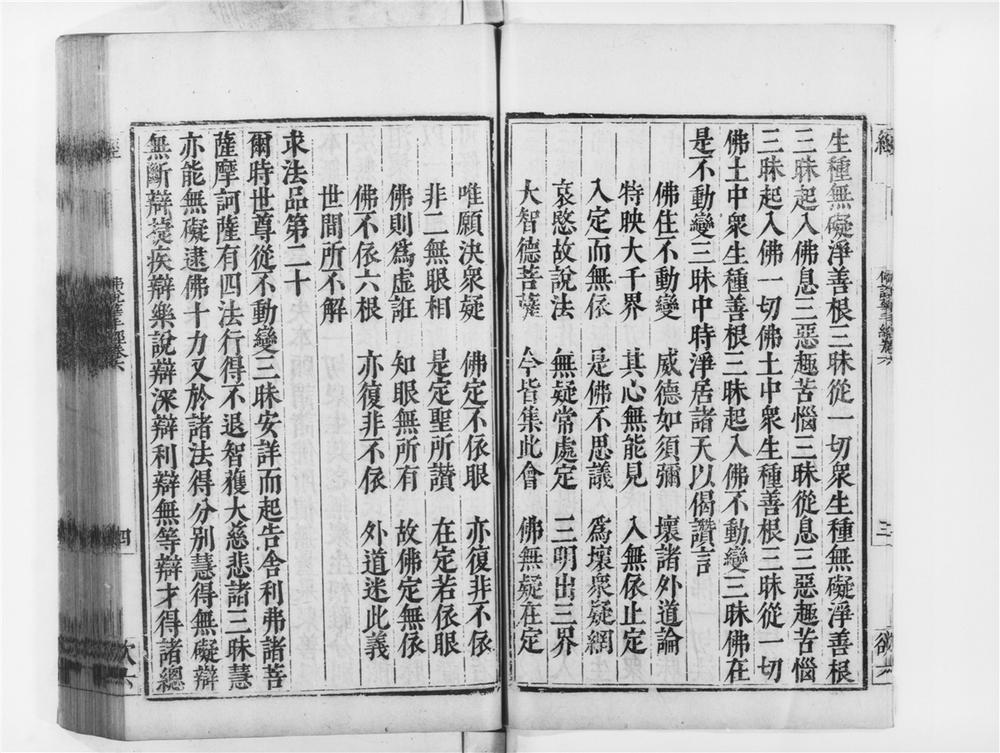 生種無礙淨善根三昧從一切衆生種無礙淨善根
三昧起入佛息三惡趣苦惱三昧從息三惡趣苦惱
三昧起入佛一切佛土中衆生種善根三昧從一切
佛土中衆生種善根三昧起入佛不動變三昧佛在
是不動變三昧中時淨居諸天以偈讚言
佛住不動變 威德如須彌 壞諸外道論
特映大千界 其心無能見 入無依止定
入定而無依 是佛不思議 爲壞衆疑網
哀愍故說法 無疑常處定 三明出三界
大智德菩薩 今皆集此會 佛無疑在定
唯願決衆疑 佛定不依眼 亦復非不依
非二無眼相 是定聖所讚 在定若依眼
佛則爲虛誑 知眼無所有 故佛定無依
佛不依六根 亦復非不依 外道迷此義
世間所不解
求法品第二十
爾時世尊從不動變三昧安詳而起告舍利弗諸菩
薩摩訶薩有四法行得不退智獲大慈悲諸三昧慧
亦能無礙逮佛十力又於諸法得分別慧得無礙辯
無斷辯捷疾辯樂說辯深辯利辯無等辯才得諸總